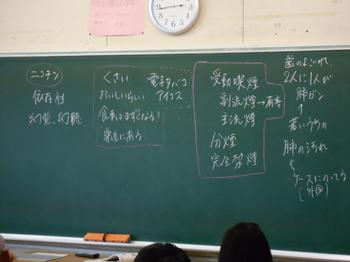 ニコチン
依存性
幻覚・幻聴
くさい
おいしいらしい
食事はまずくなる!
電子タバコ
アイコス
受動喫煙
副流煙→有害
主流煙
分煙
完全禁煙
歯のよごれ、
2人に1人が
肺ガン
↑
若いうちの
肺の汚れ
↑
ケースに入ってる
(外国)